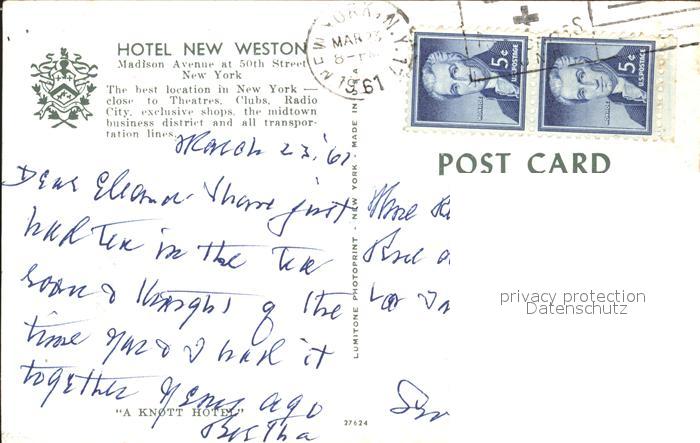 HOTEL NEW WESTON
Madison Avenue at 50th Street
New York
The best location in New York —
close to Theatres, Clubs, Radio
City, exclusive shops, the midtown
business district and all transpor-
tation lines.
NEW YORK, N.Y.
MAR 23
8 - PM
1961
5¢
U.S. POSTAGE
5¢
U.S. POSTAGE
POST CARD
March 23, '61
Dear Eleanor - I have just
had tea in the tea
room & thought of the
time you & I had it
together years ago
Bertha
LUMITONE PHOTOPRINT - NEW YORK - MADE IN U.S.A.
"A KNOTT HOTEL"
27624
privacy protection
Datenschutz